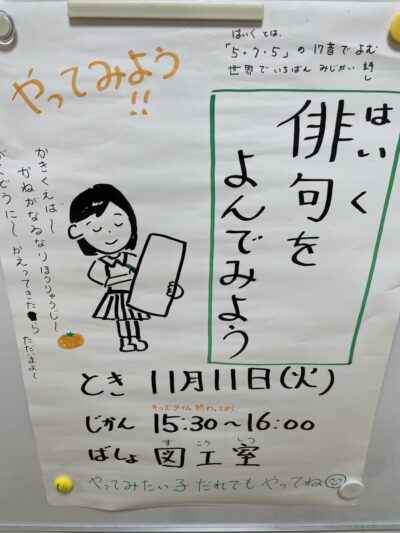 はいくとは、
「5・7・5」の17音でよむ
世界でいちばんみじかい詩
し
やってみよう
!!
はいく
俳句を
よんでみよう
かきくえば〜
かねがなるなりほうりゅうじ〜
がようどうに〜かえってきたら ただいまぁ〜
とき 11月11日(火)
キッズタイム終わってから
じかん 15:30〜16:00
ず こう しつ
ばしょ 図工室
やってみたい子 だれでも やってね